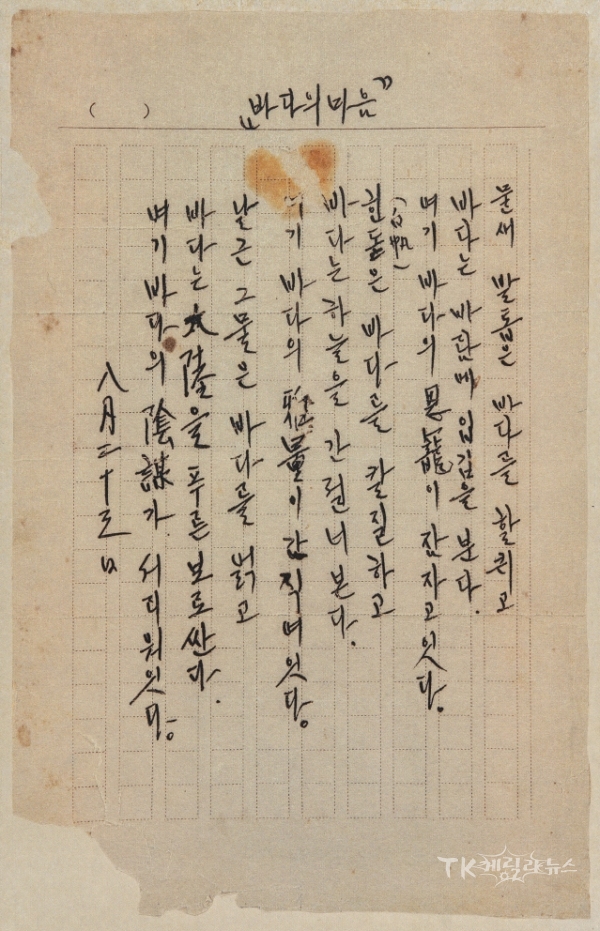 ( )
„바다의마음”
물새 발톱은 바다를 할퀴고
바다는 바람에 입김을 분다.
여기 바다의 恩籠이 잠자고잇다.
흰돛(白帆)은 바다를 칼질하고
바다는 하늘을 간질너본다.
여기 바다의 雅量이 간직여잇다.
날근 그물은 바다를 얽고
바다는 大陸을 푸른 보로싼다.
여기 바다의 陰謀가 서리워잇다.
八月二十三日
TK게릴라뉴스